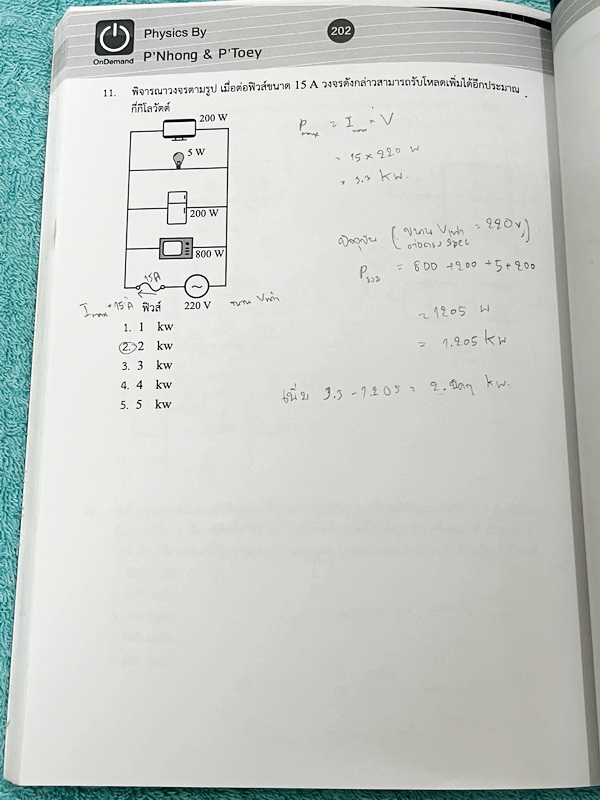 OnDemand
Physics By
P'Nhong & P'Toey
202
11. พิจารณาวงจรตามรูป เมื่อต่อฟิวส์ขนาด 15 A วงจรดังกล่าวสามารถรับโหลดเพิ่มได้อีกประมาณ
กี่กิโลวัตต์
200 W
5 W
200 W
800 W
15A
I max = 15 A ฟิวส์
220 V
ขนาน V เท่า
1. 1 kw
2. 2 kw
3. 3 kw
4. 4 kw
5. 5 kw
P max = I max × V
= 15 × 220 W
= 3.3 kW.
ปัจจุบัน (ขนาน V เท่า = 220 V,
ต่อตรง spec)
P รวม = 800 + 200 + 5 + 200
= 1205 W
= 1.205 kW
เพิ่ม 3.3 - 1.205 = 2.นิดๆ kW.